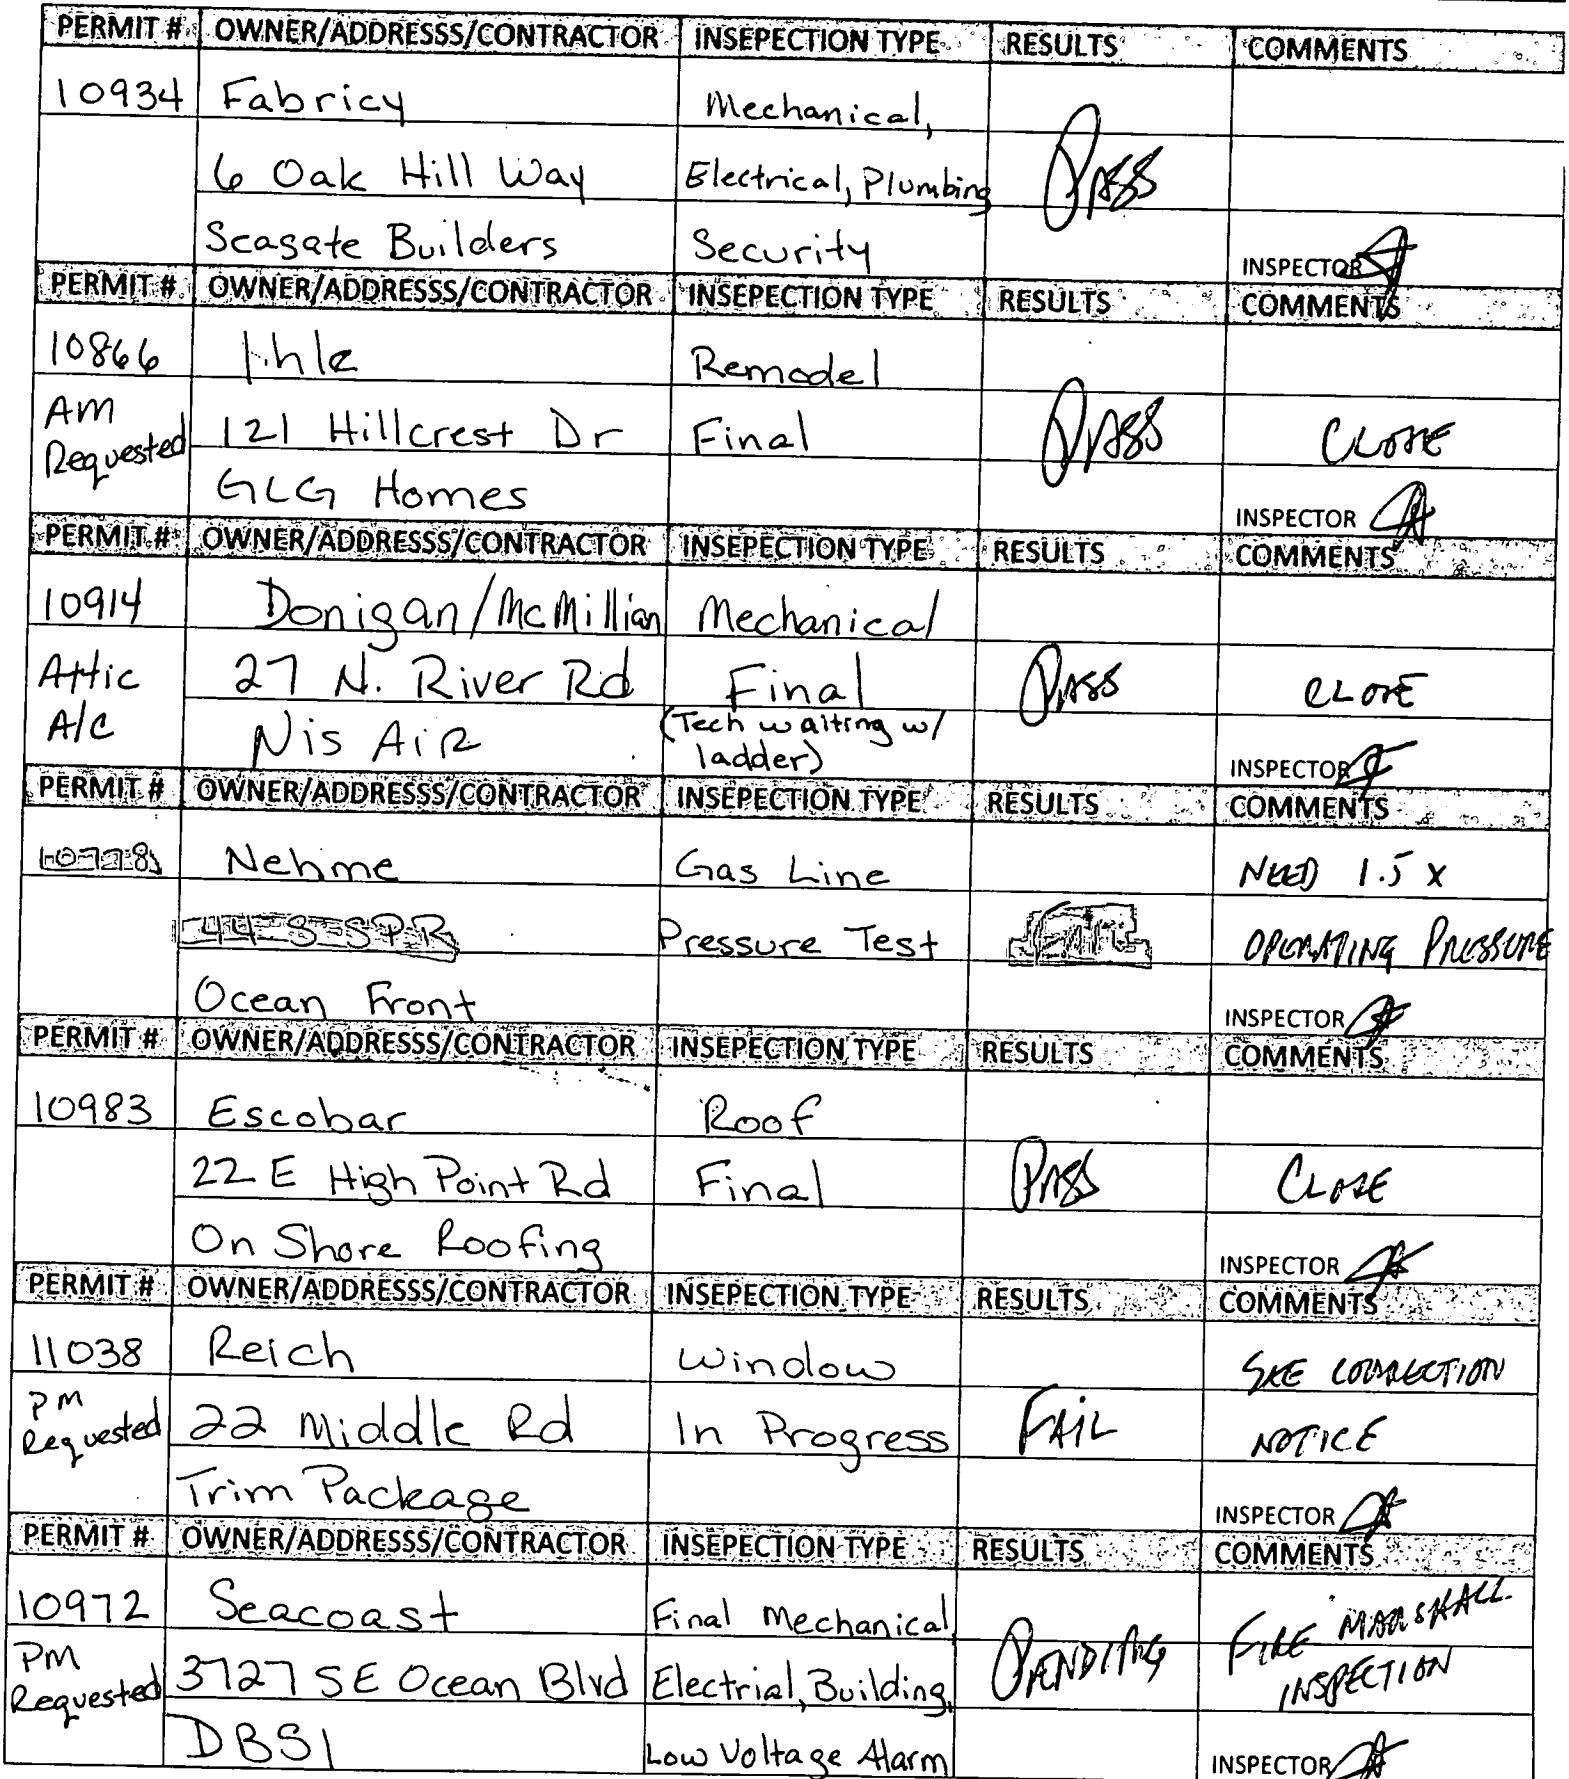 PERMIT # OWNER/ADDRESSS/CONTRACTOR INSEPECTION TYPE RESULTS COMMENTS
10934 Fabricy Mechanical,
6 Oak Hill Way Electrical, Plumbing PASS
Seagate Builders Security INSPECTOR
PERMIT # OWNER/ADDRESSS/CONTRACTOR INSEPECTION TYPE RESULTS COMMENTS
10866 Ihle Remodel
AM Requested 121 Hillcrest Dr Final PASS CLOSE
GLG Homes INSPECTOR
PERMIT # OWNER/ADDRESSS/CONTRACTOR INSEPECTION TYPE RESULTS COMMENTS
10914 Donigan/McMillian Mechanical
Attic 27 N. River Rd Final PASS CLOSE
A/C Nis Air (Tech waiting w/ ladder) INSPECTOR
PERMIT # OWNER/ADDRESSS/CONTRACTOR INSEPECTION TYPE RESULTS COMMENTS
10778 Nehme Gas Line NEED 1.5 x
44 S SPR Pressure Test FAIL OPERATING PRESSURE
Ocean Front INSPECTOR
PERMIT # OWNER/ADDRESSS/CONTRACTOR INSEPECTION TYPE RESULTS COMMENTS
10983 Escobar Roof
22 E High Point Rd Final PASS CLOSE
On Shore Roofing INSPECTOR
PERMIT # OWNER/ADDRESSS/CONTRACTOR INSEPECTION TYPE RESULTS COMMENTS
11038 Reich Window SEE CORRECTION
PM Requested 22 Middle Rd In Progress FAIL NOTICE
Trim Package INSPECTOR
PERMIT # OWNER/ADDRESSS/CONTRACTOR INSEPECTION TYPE RESULTS COMMENTS
10972 Seacoast Final Mechanical, FIRE MARSHALL
PM Requested 3727 SE Ocean Blvd Electrial, Building, PENDING INSPECTION
DBSI Low Voltage Alarm INSPECTOR